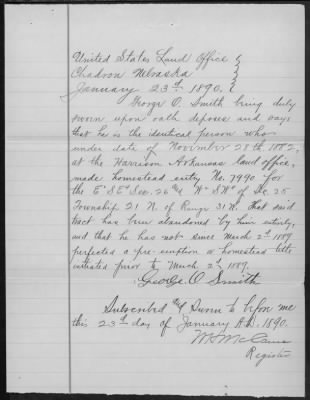 United States Land Office
Chadron Nebraska
January 23d 1890.
George O. Smith being duly
sworn upon oath deposes and says
that he is the identical person who
under date of November 28th 1882,
at the Harrison Arkansas land office,
made homestead entry No. 7990 for
the E½ SE¼ Sec. 26 and W½ SW¼ of Sec. 25
Township 21 N. of Range 31 W. That said
tract has been abandoned by him entirely,
and that he has not since March 2d 1889
perfected a pre-emption or homestead title
initiated prior to March 2d 1889.
George O Smith
Subscribed and Sworn to before me
this 23d day of January A.D. 1890.
Register